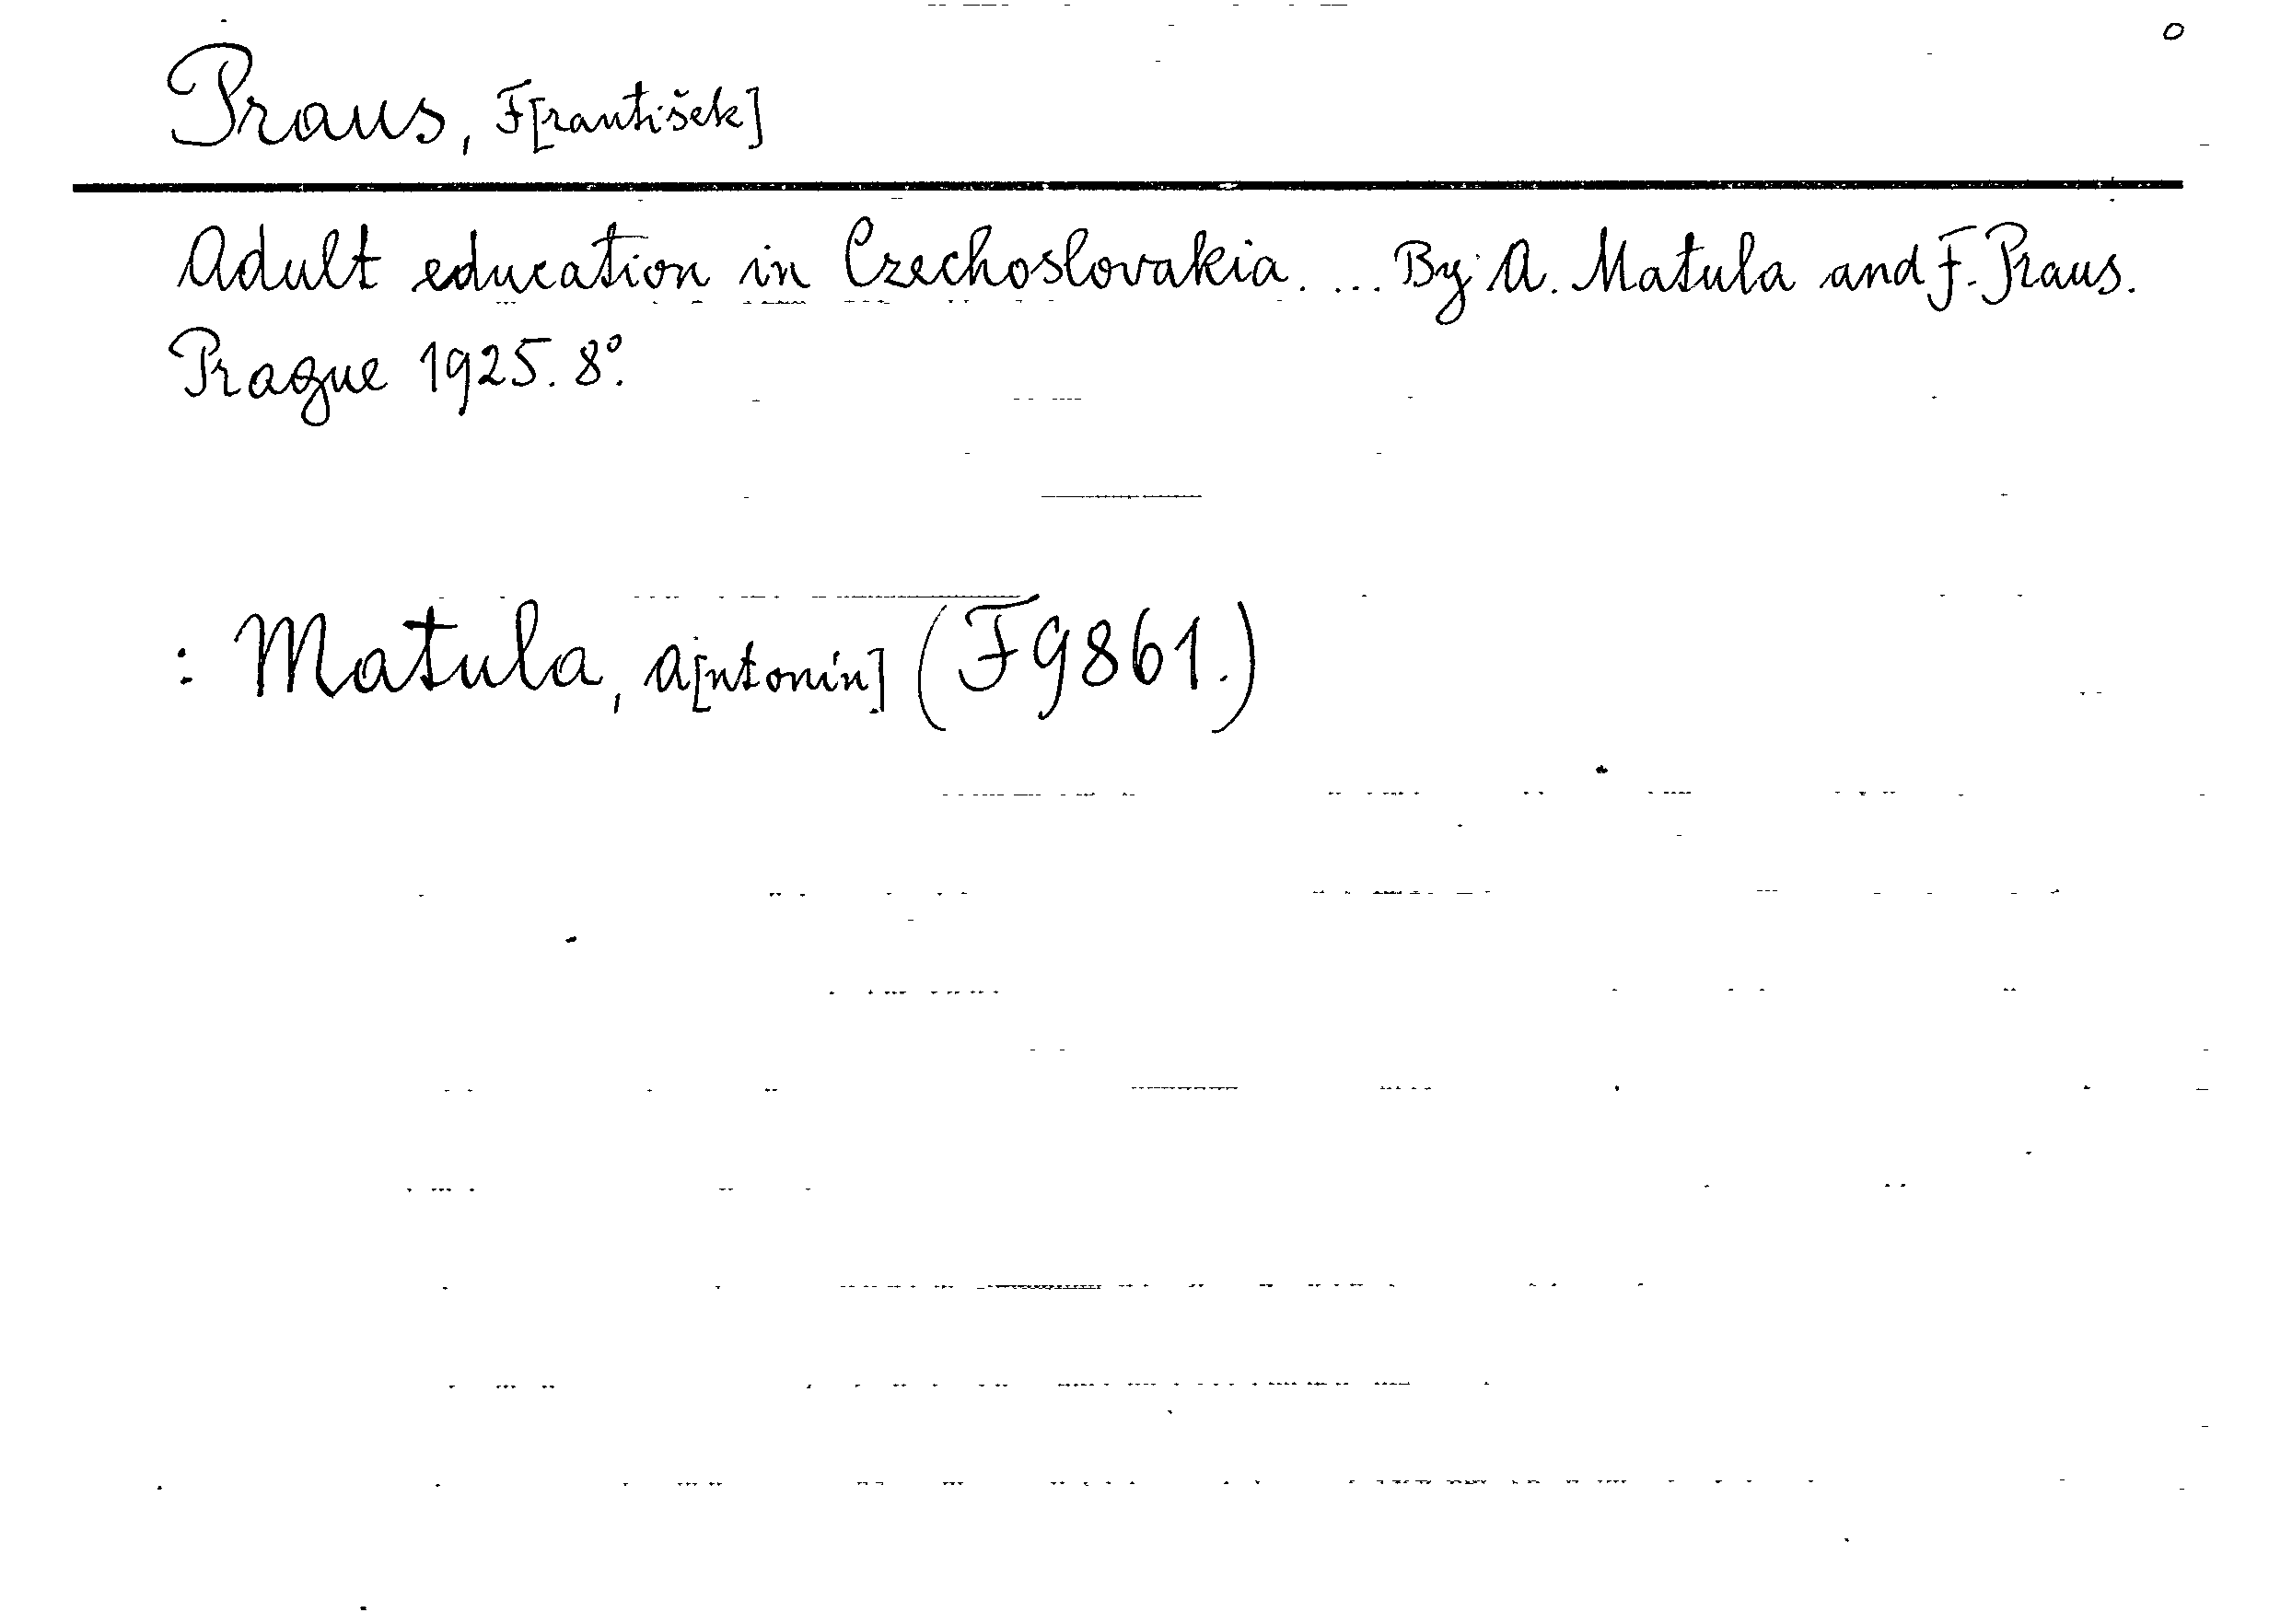 Praus, F[rantišek]
Adult education in Czechoslovakia. ... By A. Matula and F. Praus.
Prague 1925. 8°.
: Matula, A[ntonín] (F9861.)